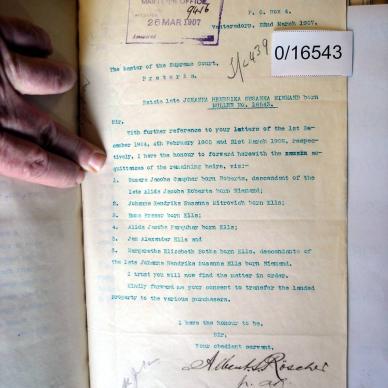 MASTER'S OFFICE
9416
26 MAR 1907
P. O. Box 4.
Ventersdorp, 22nd March 1907.
3/c 439
0/16543
The Master of the Supreme Court,
Pretoria.
Estate late JOHANNA HENDRIKA SUSANNA NIEMAND born
MULLER No. 16543.
Sir,
With further reference to your letters of the 1st De-
cember 1904, 4th February 1905 and 31st March 1905, respec-
tively, I have the honour to forward herewith the ac-
quittances of the remaining heirs, viz:-
1. Susara Jacoba Campher born Roberts, descendant of the
late Alida Jacoba Roberts born Niemand;
2. Johanna Hendrika Susanna Mitrovich born Ells;
3. Rosa Fraser born Ells;
4. Alida Jacoba Farquhar born Ells;
5. Jan Alexander Ells and
6. Margaretha Elizabeth Botha born Ells, descendants of
the late Johanna Hendrika Susanna Ells born Niemand.
I trust you will now find the matter in order.
Kindly forward me your consent to transfer the landed
property to the various purchasers.
I have the honour to be,
Sir,
Your obedient servant,
Albert L. Röscher